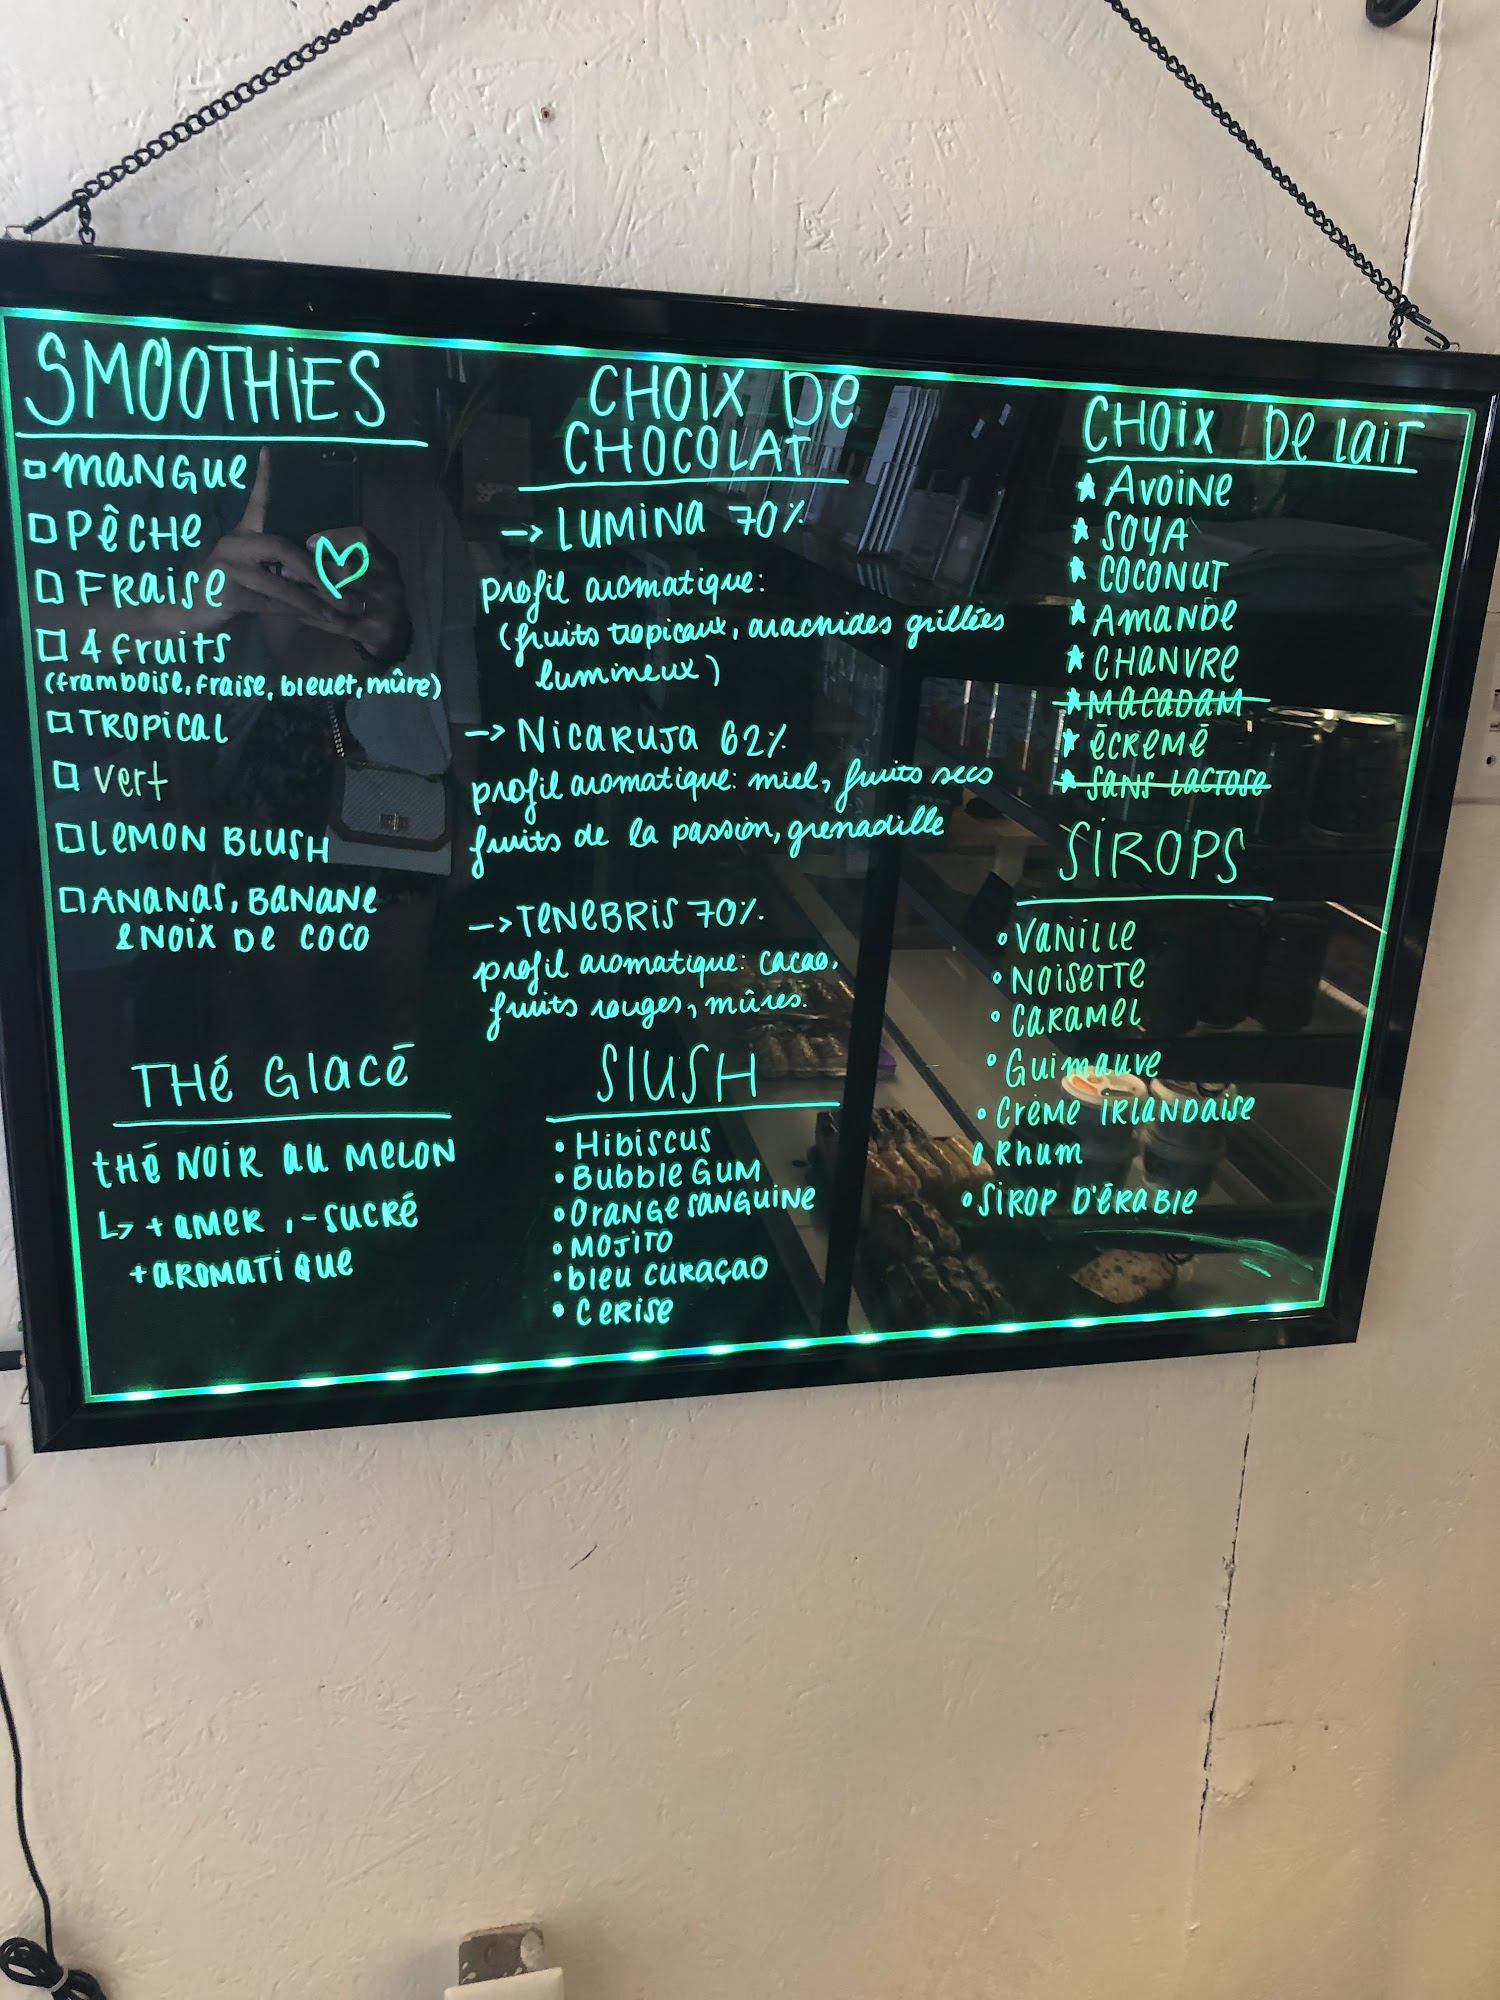 SMOOTHIES
MANGUE
PÊCHE
FRAISE
4 fruits
(framboise, fraise, bleuet, mûre)
TROPICAL
vert
LEMON BLUSH
ANANAS, BANANE
& NOIX DE COCO
THÉ GLACÉ
THÉ NOIR AU MELON
↳ + AMER, - SUCRÉ
+ AROMATIQUE
CHOIX DE
CHOCOLAT
→ LUMINA 70%
profil aromatique:
(fruits tropicaux, arachides grillées
lumineux)
→ NICARUJA 62%
profil aromatique: miel, fruits secs
fruits de la passion, grenadille
→ TENEBRIS 70%.
profil aromatique: cacao,
fruits rouges, mûres.
SLUSH
• HIBISCUS
• BUBBLE GUM
• ORANGE SANGUINE
• MOJITO
• bleu CURAÇAO
• CERISE
CHOIX DE LAIT
★ AVOINE
★ SOYA
★ COCONUT
★ AMANDE
★ CHANVRE
★ MACADAM
★ ÉCREMÉ
★ SANS LACTOSE
SIROPS
• VANILLE
• NOISETTE
• CARAMEL
• GUIMAUVE
• CRÈME IRLANDAISE
• Rhum
• SIROP D'ÉRABLE